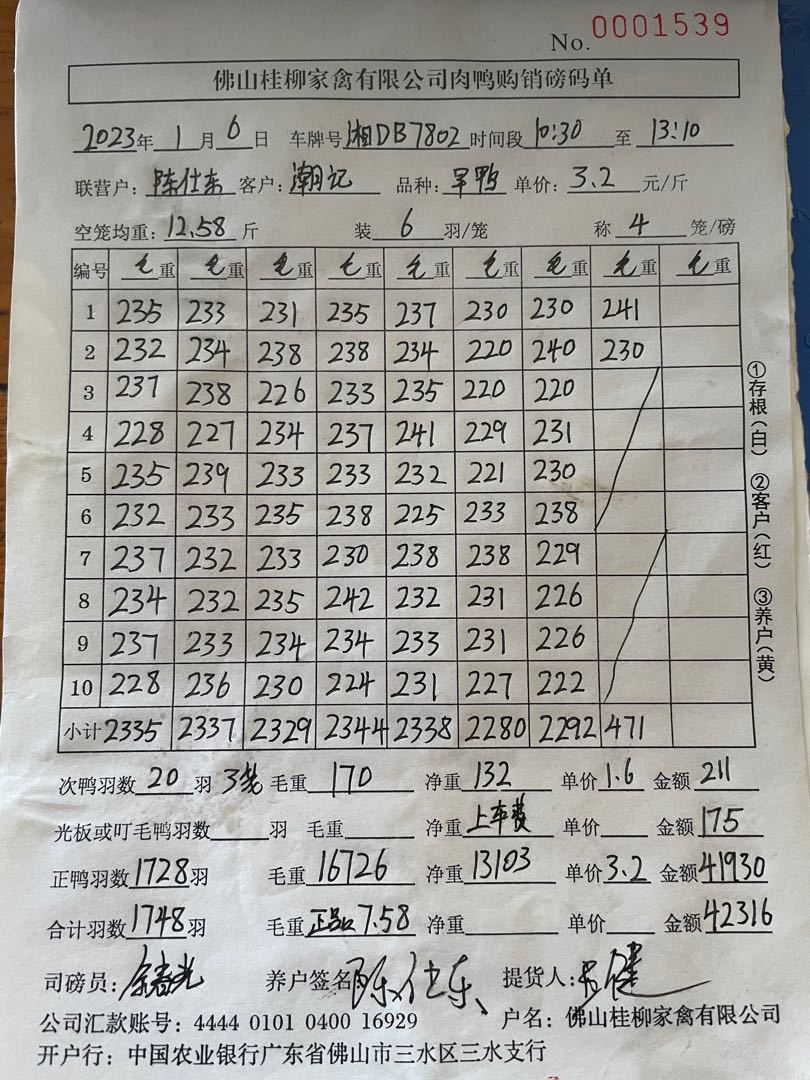 No. 0001539
佛山桂柳家禽有限公司肉鸭购销磅码单
2023年 1 月 6 日 车牌号 湘DB7802 时间段 10:30 至 13:10
联营户: 陈仕东 客户: 潮记 品种: 旱鸭 单价: 3.2 元/斤
空笼均重: 12.58 斤 装 6 羽/笼 称 4 笼/磅
编号 毛重 毛重 毛重 毛重 毛重 毛重 毛重 毛重 毛重
1 235 233 231 235 237 230 230 241
2 232 234 238 238 234 220 240 230
3 237 238 226 233 235 220 220
4 228 227 234 237 241 229 231
5 235 239 233 233 232 221 230
6 232 233 235 238 225 233 238
7 237 232 233 230 238 238 229
8 234 232 235 242 232 231 226
9 237 233 234 234 233 231 226
10 228 236 230 224 231 227 222
小计 2335 2337 2329 2344 2338 2280 2292 471
次鸭羽数 20 羽 3笼 毛重 170 净重 132 单价 1.6 金额 211
光板或叮毛鸭羽数 羽 毛重 净重 上车费 单价 金额 175
正鸭羽数 1728 羽 毛重 16726 净重 13103 单价 3.2 金额 41930
合计羽数 1748 羽 毛重 正品 7.58 净重 单价 金额 42316
司磅员: 养户签名 陈仕东 提货人:
公司汇款账号: 4444 0101 0400 16929 户名: 佛山桂柳家禽有限公司
开户行: 中国农业银行广东省佛山市三水区三水支行
①存根(白) ②客户(红) ③养户(黄)